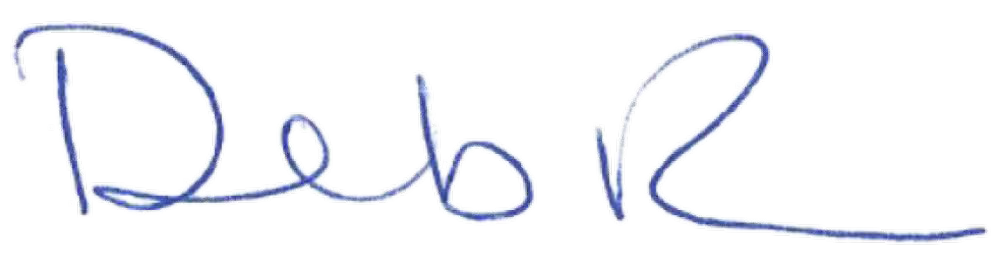 Deb R